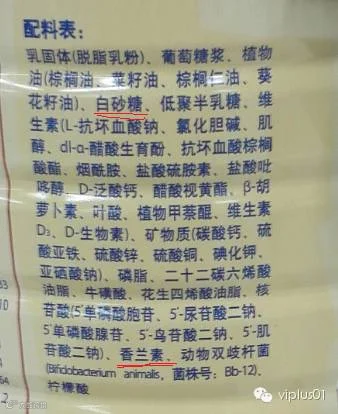 配料表:
乳固体(脱脂乳粉)、葡萄糖浆、植物
油(棕榈油、菜籽油、棕榈仁油、葵
花籽油)、白砂糖、低聚半乳糖、维
生素(L-抗坏血酸钠、氯化胆碱、肌
醇、dl-α-醋酸生育酚、抗坏血酸棕榈
酸酯、烟酰胺、盐酸硫胺素、盐酸吡
哆醇、D-泛酸钙、醋酸视黄酯、β-胡
萝卜素、叶酸、植物甲萘醌、维生素
D₃、D-生物素)、矿物质(碳酸钙、硫
酸亚铁、硫酸锌、硫酸铜、碘化钾、
亚硒酸钠)、磷脂、二十二碳六烯酸
油脂、牛磺酸、花生四烯酸油脂、核
苷酸(5'单磷酸胞苷、5'-尿苷酸二钠、
5'单磷酸腺苷、5'-鸟苷酸二钠、5'-肌
苷酸二钠)、香兰素、动物双歧杆菌
(Bifidobacterium animalis, 菌株号: Bb-12)、
柠檬酸
viplus01